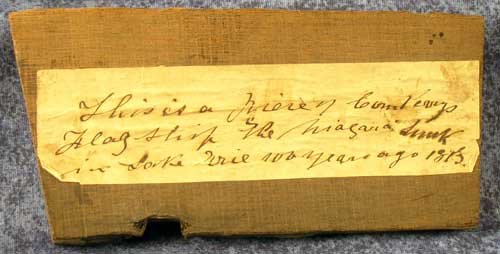 This is a Piece of Com Perrys
Flag Ship The Niagara Sunk
in Lake Erie 100 years ago 1813.